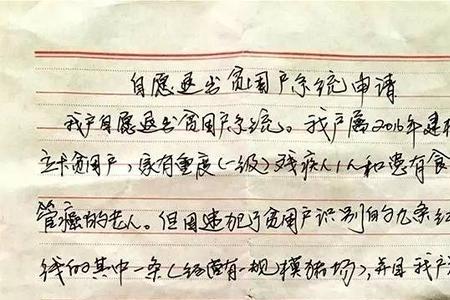 自愿退出贫困户系统申请
我户自愿退出贫困户系统。我户属2016年建档
立卡贫困户，家有重度(一级)残疾人1人和患有食
管癌的老人。但因违犯了贫困户识别的九条红
线的其中一条(经营有一规模猪场)，并且我户